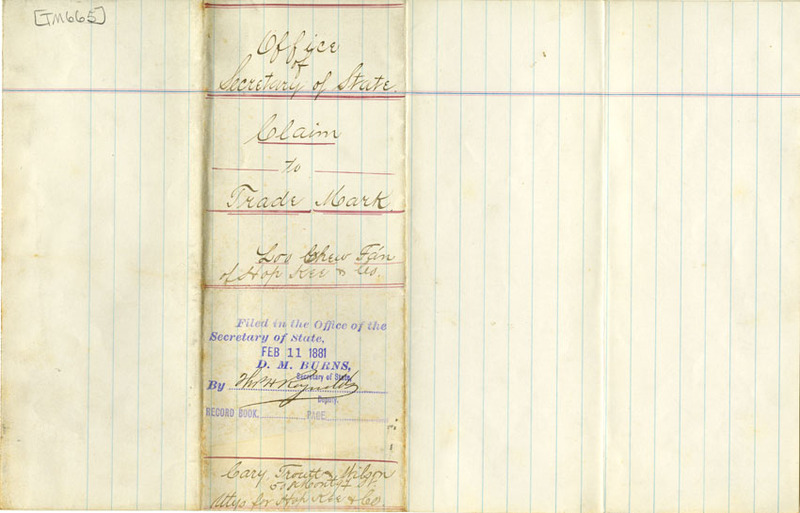 [TM665]
Office
of
Secretary of State.
Claim
to
Trade Mark.
Loo Chew Fan
of Hop Kee & Co.
Filed in the Office of the
Secretary of State,
FEB 11 1881
D. M. BURNS,
Secretary of State
By Thos H Reynolds
Deputy.
RECORD BOOK. PAGE
Cary, Troutt & Wilson
St.
Attys for Hop Kee & Co.